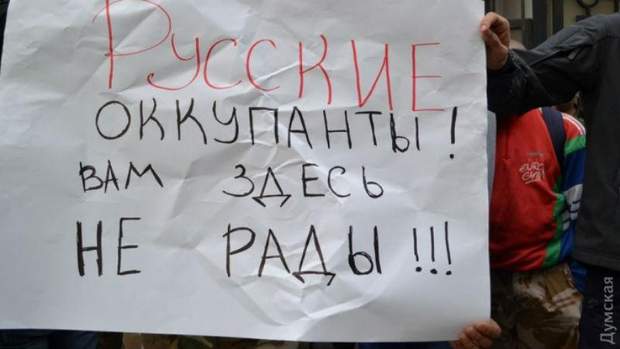 Русские
ОККУПАНТЫ!
ВАМ ЗДЕСЬ
НЕ РАДЫ!!!
Думская